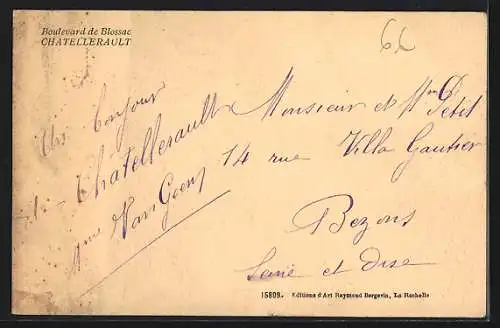 Boulevard de Blossac
CHATELLERAULT
66
Un bonjour
de Châtellerault
Mme Van Goeny
Monsieur et Mme Petit
14 rue Villa Gautier
Bezons
Seine et Oise
15809. Editions d'Art Raymond Bergevin, La Rochelle